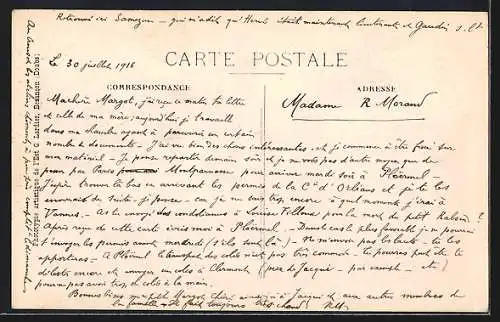 Retrouvé ici Samezun — qui m'a dit qu'Hervé était maintenant lieutenant de Gaudin
CARTE POSTALE
Le 30 juillet 1916
CORRESPONDANCE
ADRESSE
Ma chère Margot, j'ai reçu ce matin ta lettre
et celle de ma mère; aujourd'hui je travaille
dans ma chambre ayant à parcourir un certain
nombre de documents. J'ai vu bien des choses intéressantes et je commence à être fixé sur
mon matériel — Je pense repartir demain soir et je ne vois pas d'autre moyen que de
passer par Paris Montparnasse pour arriver mardi soir à Ploërmel —
J'espère trouver là-bas en arrivant les permis de la Cie d'Orléans et je te les
enverrais de suite, je pense — car je ne sais trop encore à quel moment j'irai à
Vannes. — As-tu envoyé des condoléances à Louise pour la mort du petit
Après reçu de cette carte écris moi à Ploërmel. — Dans le cas le plus favorable je ne pourrai
t'envoyer les permis avant mercredi (s'ils sont là) — Ne m'envoie pas les — tu les
apporteras — A Ploërmel le transport des colis n'est pas très commode — tu pourras peut être te
délester encore et envoyer un colis à Clermont (pour de Jacqui — par exemple — etc)
pour ne pas avoir trop de colis à la main.
Bonnes bises ma petite Margot chérie ainsi qu'à Jacqui et aux autres membres de
la famille — Il fait toujours très chaud RM
Madame R Morand
Phototypie artistique de l'Est C. Lardier, Besançon (Doubs)